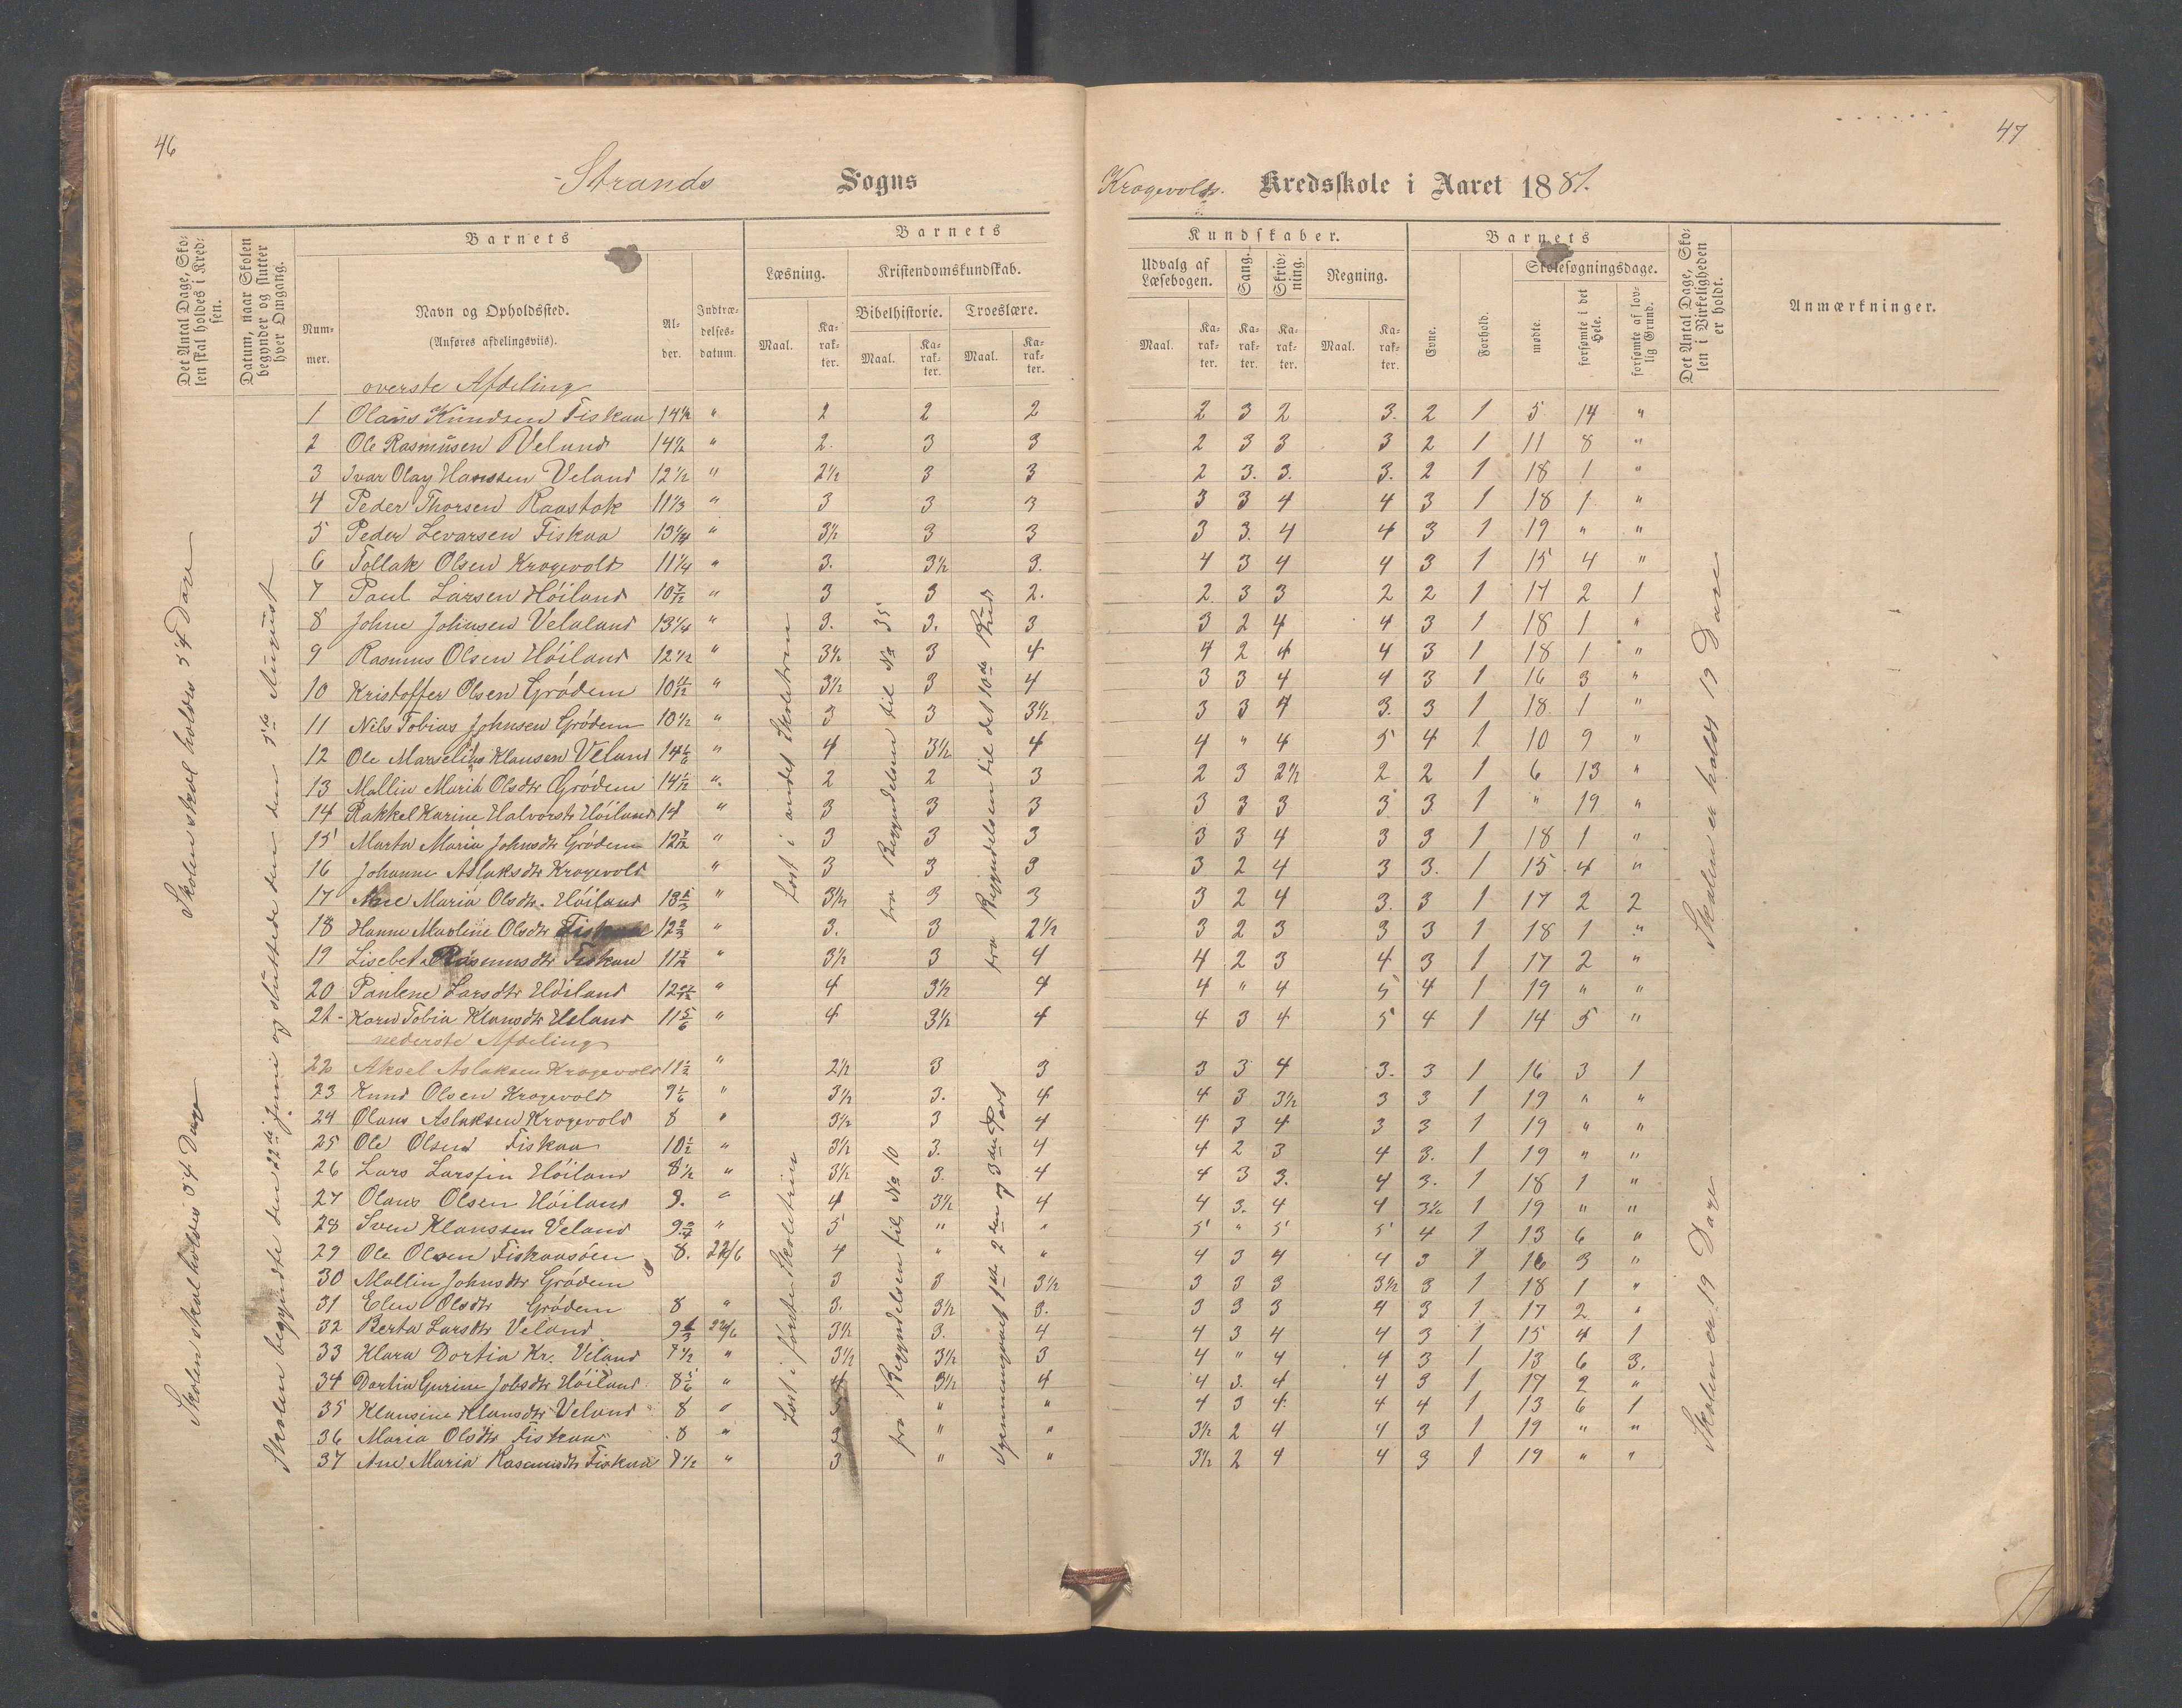 46
Strands Sogns
Det Antal Dage, Skolen skal holdes i Kredsen.
Datum, naar Skolen begynder og slutter hver Omgang.
Barnets
Barnets
Nummer.
Navn og Opholdssted.
(Anføres afdelingsviis).
Alder.
Indtrædelsesdatum.
Læsning.
Kristendomskundskab.
Bibelhistorie. Troeslære.
Maal. Karakter. Maal. Karakter. Maal. Karakter.
Skolen skal holdes 54 Dage
Skolen skal holdes 54 Dage
Skolen begyndte den 22de Juni og sluttede den 5te August
Læst i andet Skoletrin
Læst i første Skoletrin
fra Begyndelsen til No 35
fra Begyndelsen til No 10
fra Begyndelsen til det 10de Bud
Gjennemgaaet 1ste 2den og 3die Part
overste Afdeling
1 Olaus Knudsen Fiskaa 14½ " 2 2 2
2 Ole Rasmusen Veland 14½ " 2. 3 3
3 Ivar Olay Hanssen Veland 12½ " 2½ 3 3
4 Peder Thorsen Raastok 11⅓ " 3 3 3
5 Peder Levarsen Fiskaa 13¼ " 3½ 3 3
6 Tollak Olsen Krogevold 11¼ " 3. 3½ 3.
7 Paul Larsen Höiland 10 7/12 " 3 3 2.
8 Johne Johnsen Velaland 13¼ " 3. 3. 3
9 Rasmus Olsen Höiland 12½ " 3½ 3 4
10 Kristoffer Olsen Grödem 10 11/12 " 3½ 3 4
11 Nils Tobias Johnsen Grödem 10½ " 3 3 3½
12 Ole Marselius Klausen Veland 14⅙ " 4 3½ 4
13 Mallin Maria Olsdtr Grödem 14 1/12 " 2 2 3
14 Rakkel Karine Halvorsdtr Höiland 14 " 3 3 3
15 Marta Maria Johnsdtr Grödem 12 7/12 " 3 3 3
16 Johanne Aslaksdtr Krogevold " 3 3 3
17 Ane Maria Olsdtr. Höiland 13⅓ " 3½ 3 3
18 Hanne Marline Olsdtr Fiskaa 12⅔ " 3. 3 2½
19 Lisebet Rasmusdtr Fiskaa 11 " 3½ 3 4
20 Paulene Larsdtr Höiland 12 " 4 3½ 4
21 Karen Tobia Klausdtr Veland 11⅚ " 4 3½ 4
nederste Afdeling
22 Aksel Aslaksen Krogevold 11½ " 2½ 3 3
23 Knud Olsen Krogevold 9⅙ " 3½ 3. 4
24 Olaus Aslaksen Krogevold 8 " 3½ 3 4
25 Ole Olsen Fiskaa 10½ " 3½ 3. 4
26 Lars Larssen Höiland 8½ " 3½ 3. 4
27 Olaus Olsen Höiland 9. " 4 3½ 4
28 Sven Klaussen Veland 9¾ " 5 " "
29 Ole Olsen Fiskaasöen 8. 22/6 4 " "
30 Mallin Johnsdtr Grödem 3 3 3½
31 Elen Olsdtr Grödem 8 " 3. 3½ 3.
32 Berta Larsdtr Veland 9⅓ 22/6 3½ 3. 4
33 Klara Dortia Kr. Veland 7½ " 3½ 3½ 3
34 Dortia Gurine Jobsdtr Höiland 8⅚ " 4 3½ 4
35 Klausine Klausdtr Veland 8 " 3 " "
36 Maria Olsdtr Fiskaa 8 " 3 " "
37 Ane Maria Rasmusdtr Fiskaa 7½ " 3 " "
47
Krogevolds. Kredsskole i Aaret 1881.
Kundskaber.
Barnets
Udvalg af Læsebogen.
Sang.
Skrivning.
Regning.
Evne.
Forhold.
Skolesøgningsdage.
mødte.
forsømte i det Hele.
forsømte af lovlig Grund.
Det Antal Dage, Skolen i Virkeligheden er holdt.
Anmærkninger.
Maal. Karakter. Karakter. Karakter. Maal. Karakter.
2 3 2 3. 2 1 5 14 "
2 3 3 3 2 1 11 8 "
2 3. 3. 3. 2 1 18 1 "
3 3 4 4 3 1 18 1 "
3 3. 4 4 3 1 19 " "
4 3 4 4 3 1 15 4 "
2. 3 3 2 2 1 17 2 1
3 2 4 4 3 1 18 1 "
4 2 4 4 3 1 18 1 "
3 3 4 4 3 1 16 3 "
3 3 4 3. 3 1 18 1 "
4 " 4 5 4 1 10 9 "
2 3 2½ 2 2 1 6 13 "
3 3 3 3 3 1 " 19 "
3 3 4 3 3 1 18 1 "
3 2 4 3 3. 1 15 4 "
3 2 4 3. 3 1 17 2 2
3 2 3 3 3 1 18 1 "
4 2 3 4 3 1 17 2 "
4 " 4 5 4 1 19 " "
4 3 4 5 4 1 14 5 "
3 3 4 3. 3 1 16 3 1
4 3 3½ 3 3 1 19 " "
4 3 4 3 3 1 19 " "
4 2 3 4 3. 1 19 " "
4 3 3. 4 3. 1 18 1 "
4 3. 4 4 3½ 1 19 " "
5 " 5 5 4 1 13 6 "
4 3 4 4 3 1 16 3 "
3 3 3 3½ 3 1 18 1 "
3 3 3 4 3 1 17 2 "
4 3 4 4 3 1 15 4 1
4 " 4 4 3 1 13 6 3.
4 3. 4 4 3 1 17 2 "
4 3 4 4 4 1 13 6 1
3½ 2 4 4 3 1 19 " "
3½ 2 4 4 3 1 19 " "
Skolen er holdt 19 Dage
Skolen er 19 Dage